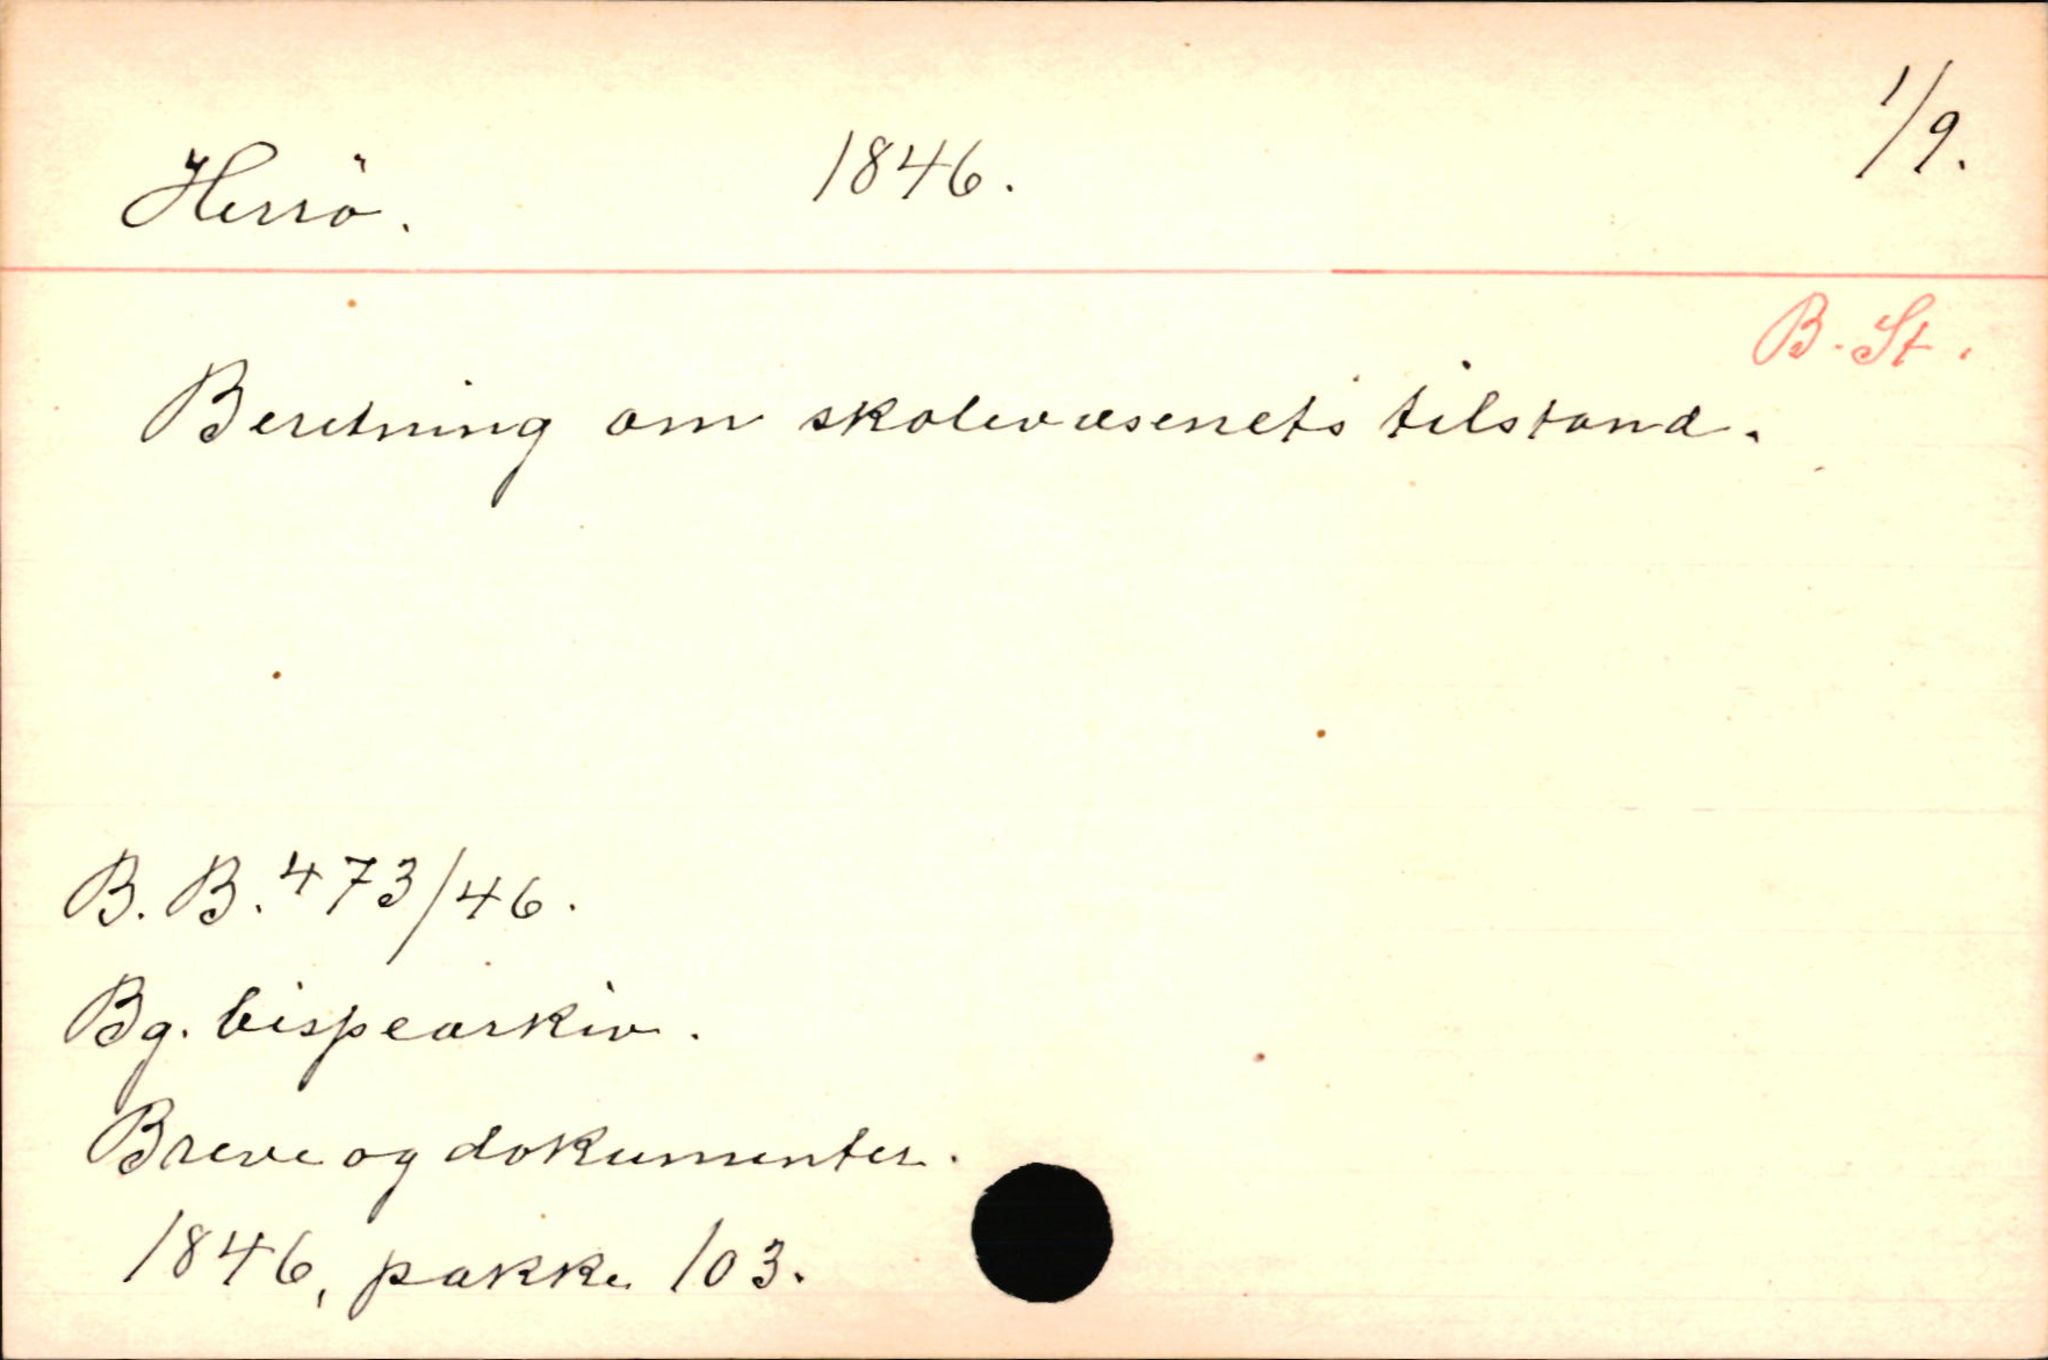 Herrö. 1846. 1/9.
B. St.
Beretning om skolevæsenets tilstand.
B. B. 473/46.
Bg. bispearkiv.
Breve og dokumenter.
1846, pakke 103.